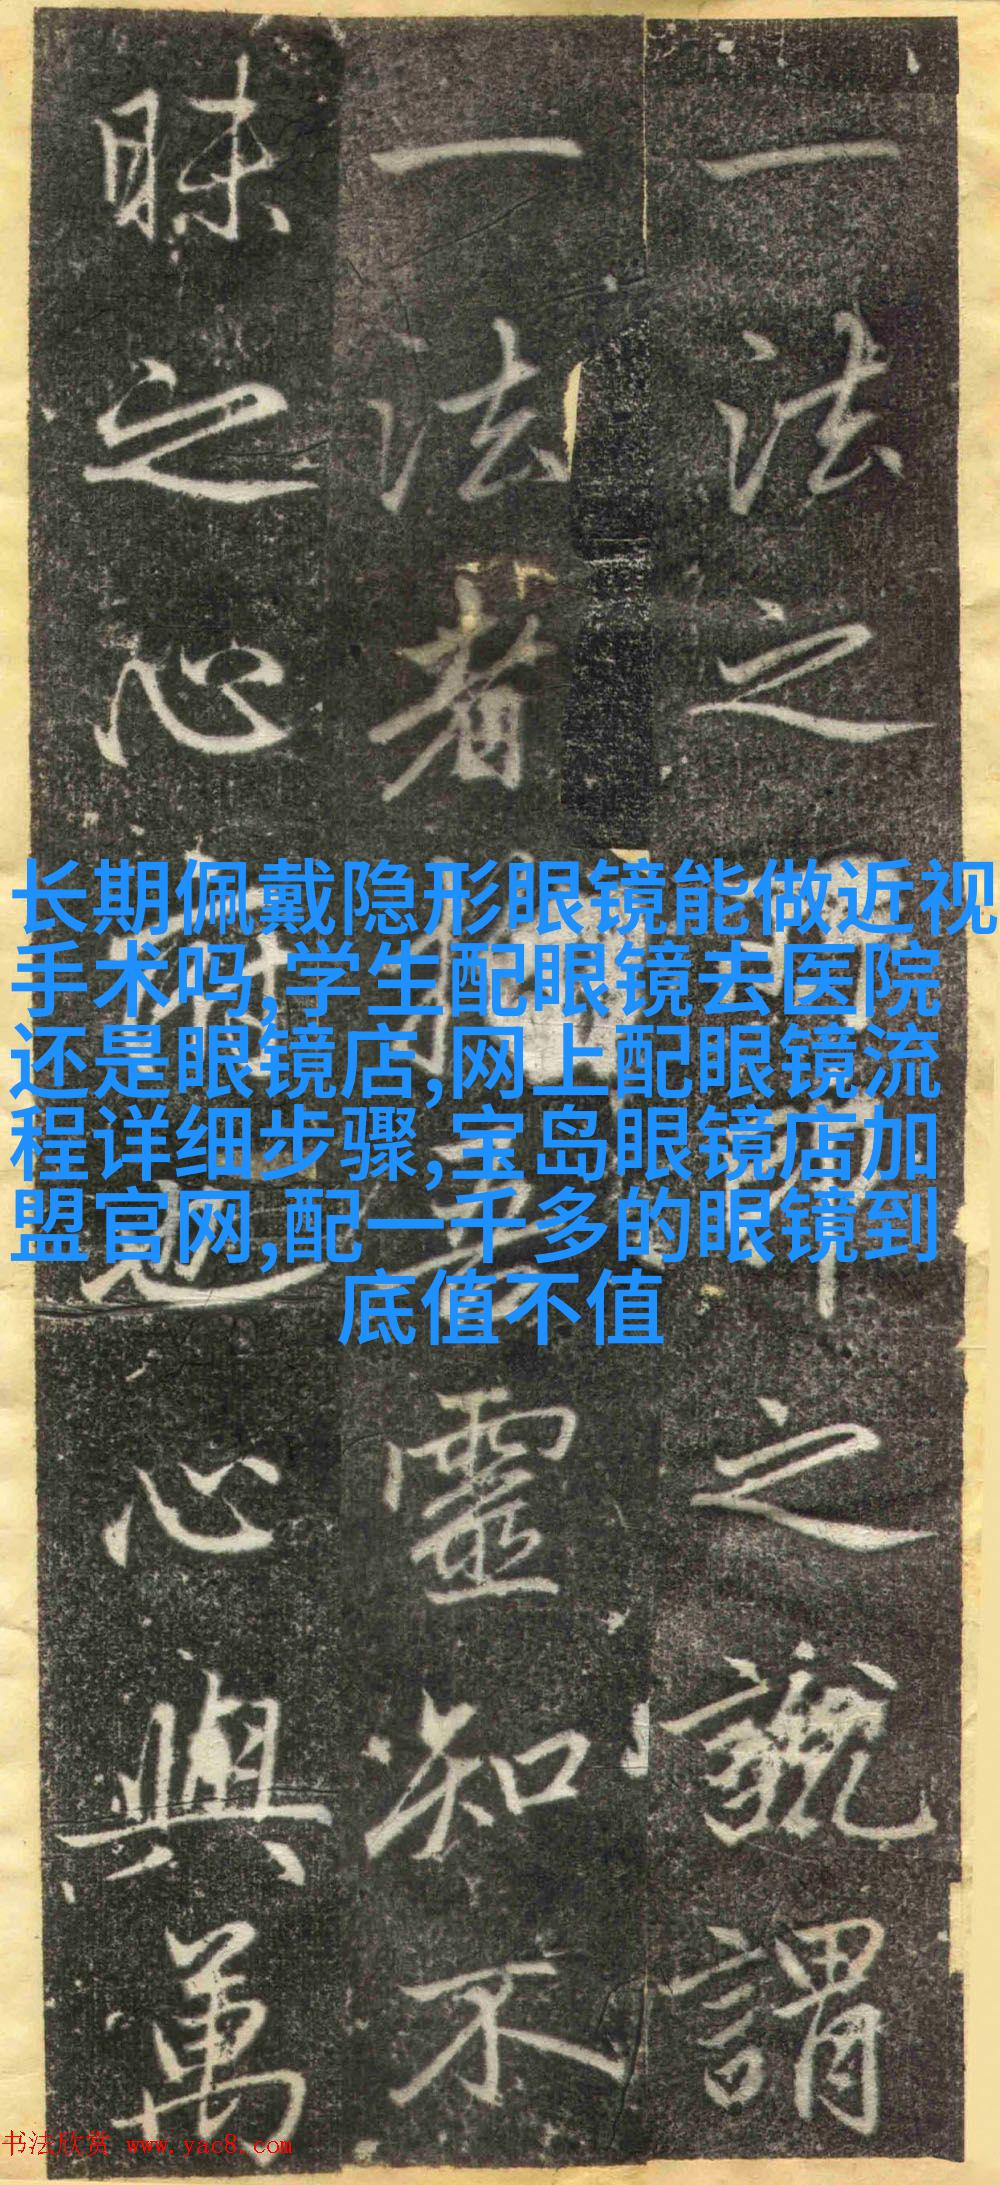 一法之之謂
一法者吾靈知不
昧之心也心與萬
长期佩戴隐形眼镜能做近视
手术吗,学生配眼镜去医院
还是眼镜店,网上配眼镜流
程详细步骤,宝岛眼镜店加
盟官网,配一千多的眼镜到
底值不值
书法欣赏 www.yac8.com